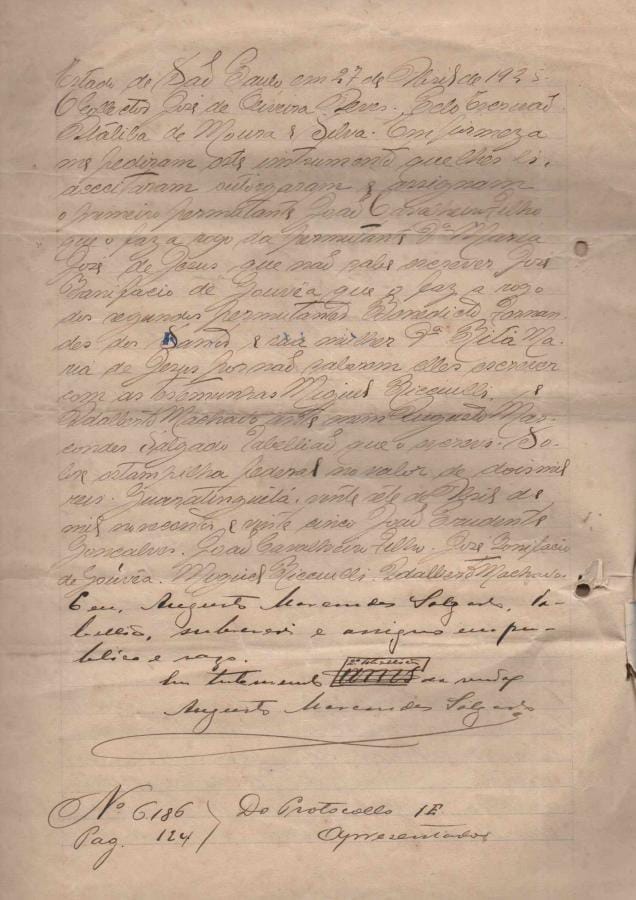 Estado de São Paulo em 27 de Abril de 1925.
O Collector José de Oliveira Neves. Pelo Escrivão
Itáliba de Moura e Silva. Em firmeza
me pediram este instrumento que lhes li,
acceitaram outorgaram e assignam
o primeiro permutante João Cavalheiro Filho
que o faz a rogo da permutante Dª Maria
José de Jesus que não sabe escrever José
Bonifacio de Gouvêa que o faz a rogo
dos segundos permutantes Benedicto Fernan-
des dos Santos e sua mulher Dª Rita Ma-
ria de Jesus por não saberem elles escrever
com as testemunhas Miguel Ricciulli e
Adalberto Machado ante mim Augusto Mar-
condes Salgado Tabellião que o escrevi. So-
bre estampilha federal no valor de dois mil
reis. Guaratinguetá, vinte sete de Abril de
mil novecentos e vinte cinco João Prudente
Gonçalves. João Cavalheiro Filho. José Bonifacio
de Gouvêa. Miguel Ricciulli. Adalberto Machado.
E eu, Augusto Marcondes Salgado, ta-
bellião, subscrevi e assigno em pu-
blico e razo.
Em testemunho da verdade
Augusto Marcondes Salgado
Nº 6.186 Do Protocollo 1E
Pag. 124 Apresentados